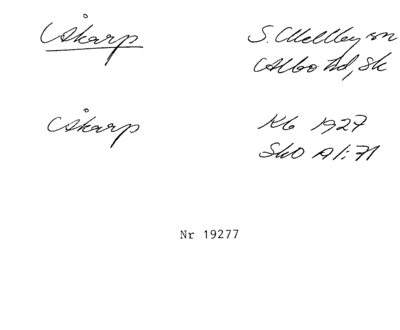 Åkarp
S. Mellby sn
Albo hd, Sk
Åkarp
Kb 1927
SkO A1:71
Nr 19277